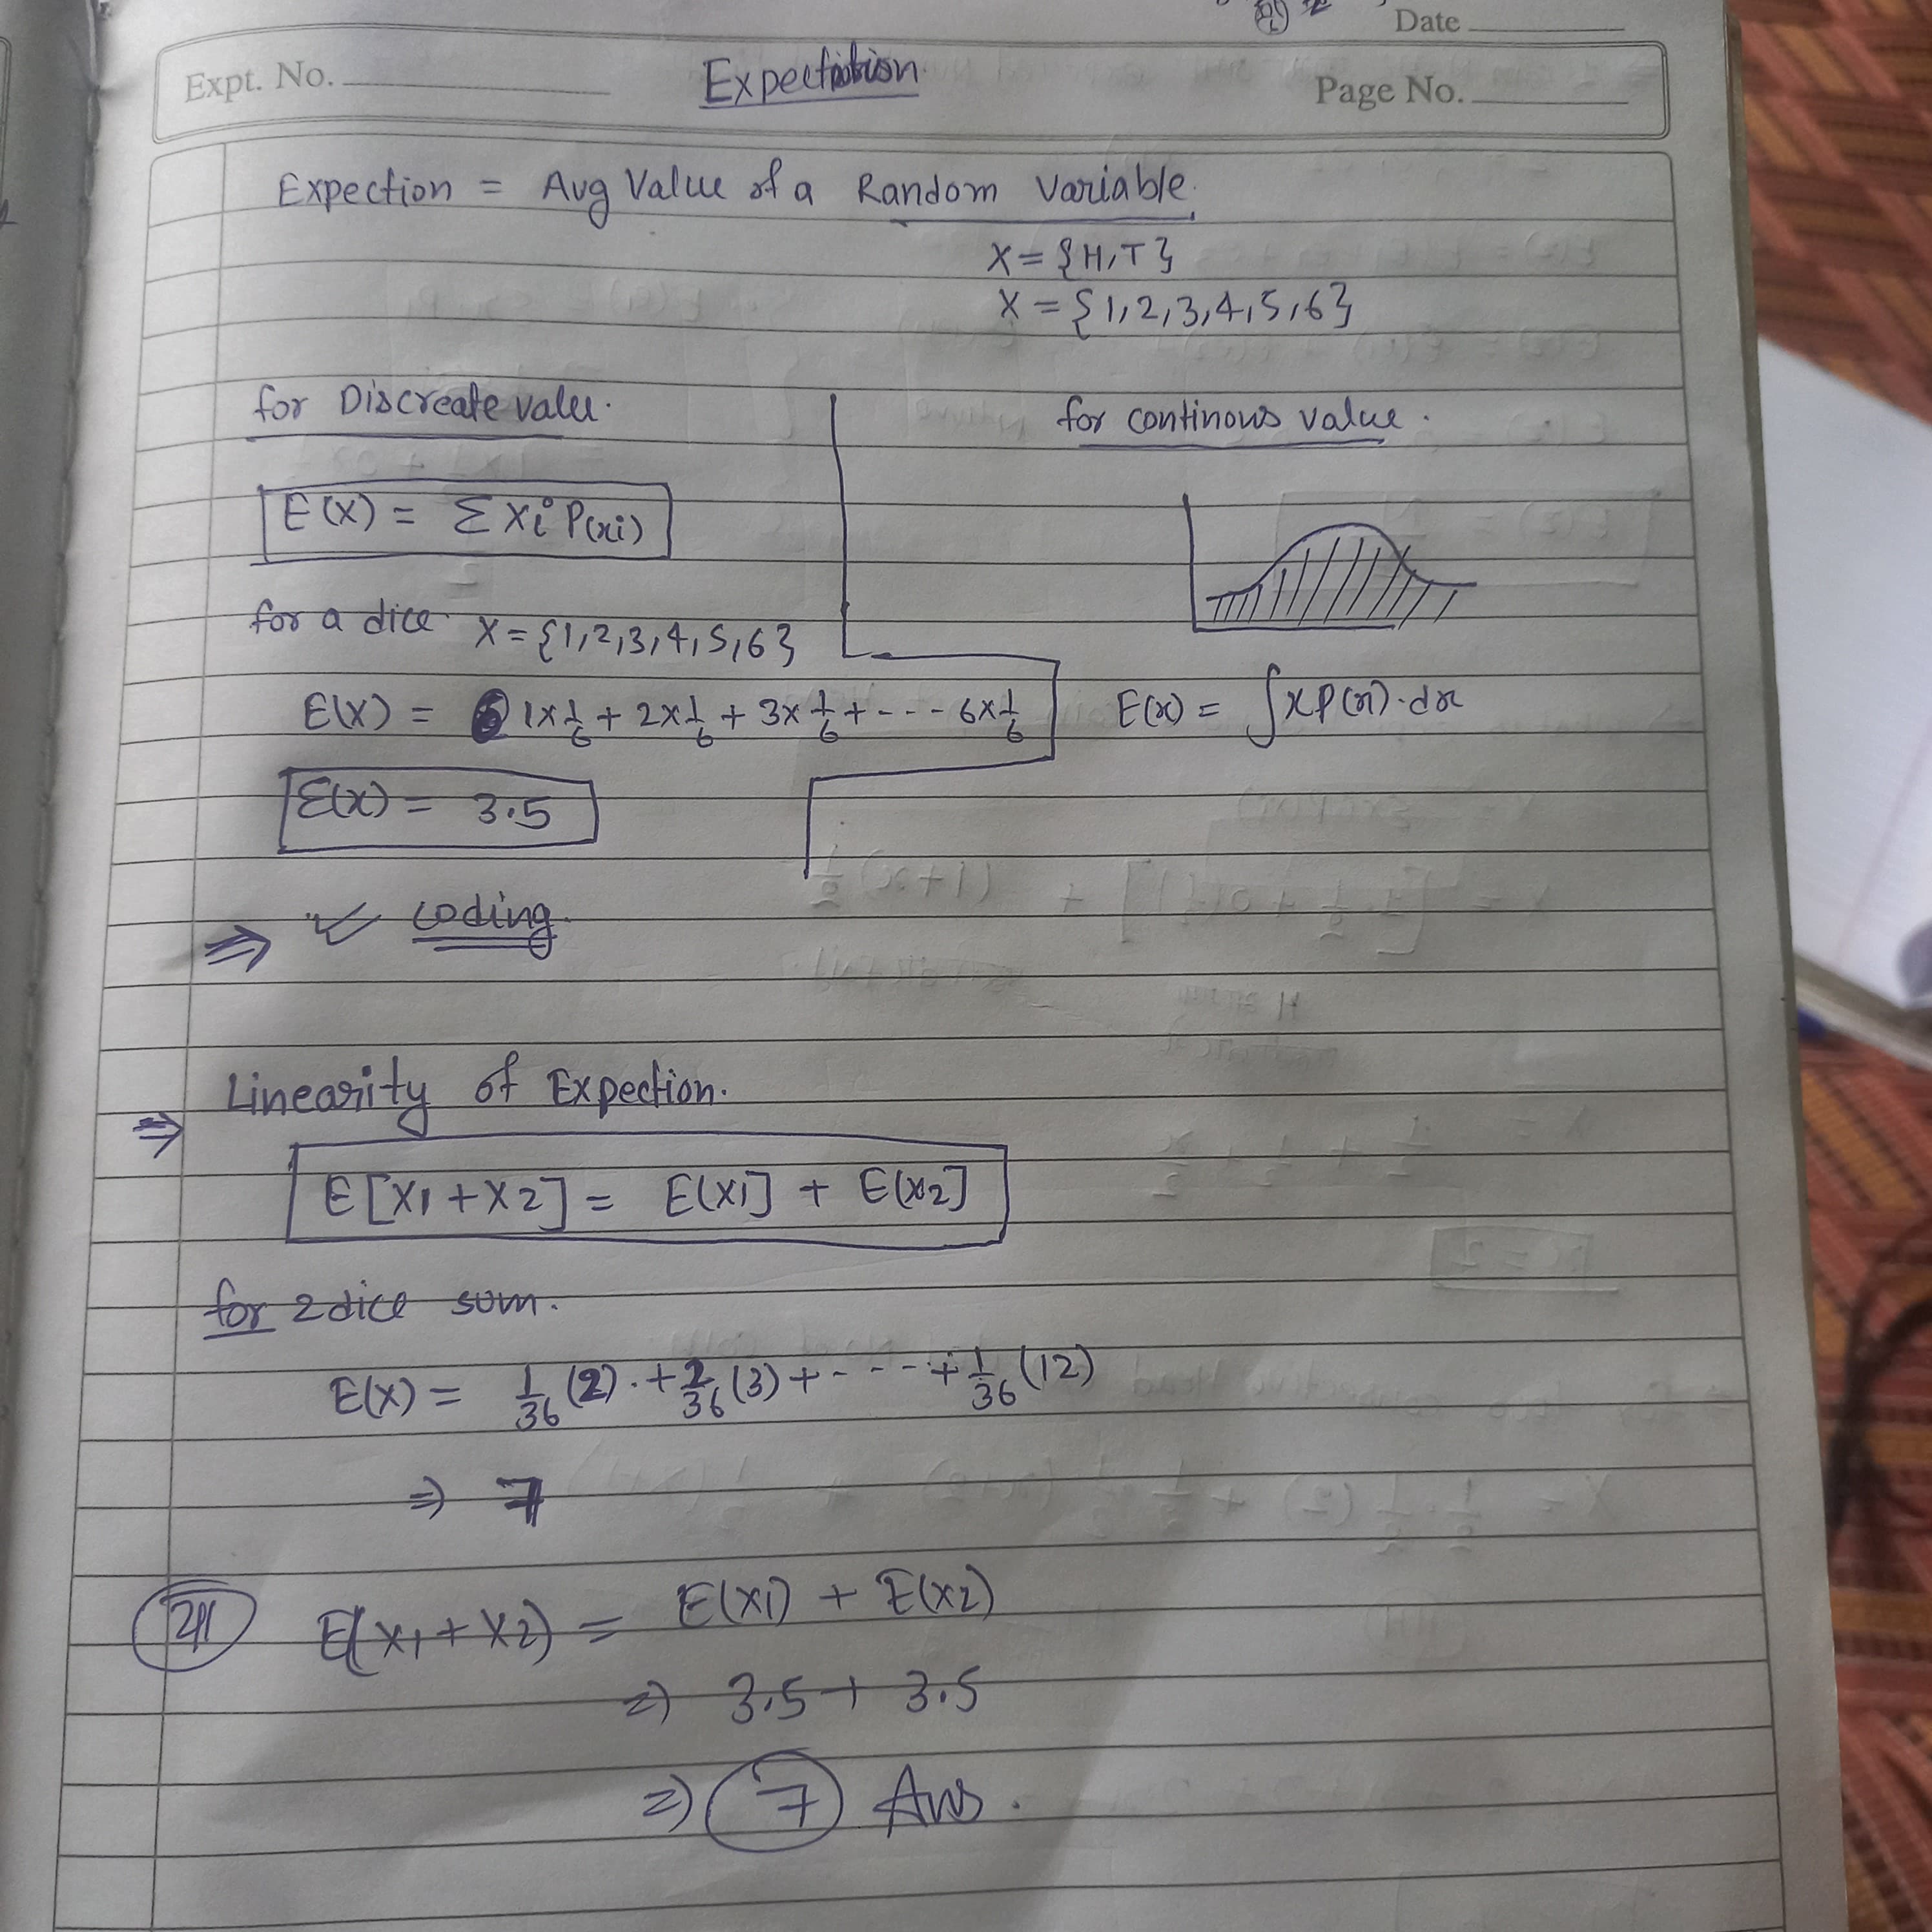 Date
Expt. No.
Expectation
Page No.
Expection = Avg Value of a Random Variable.
X = {H,T}
X = {1,2,3,4,5,6}
for Discreate value.
E(X) = Σ Xi P(xi)
for a dice X = {1,2,3,4,5,6}
E(X) = 1×1/6 + 2×1/6 + 3×1/6 + --- 6×1/6
E(x) = 3.5
for continous value.
E(x) = ∫xP(x).dx
⇒ coding.
⇒ Linearity of Expection.
E[X1 + X2] = E(X1] + E(X2]
for 2 dice sum.
E(X) = 1/36 (2). + 2/36 (3) + ---- + 1/36 (12)
⇒ 7
E(X1 + X2) = E(X1) + E(X2)
⇒ 3.5 + 3.5
⇒ 7 Ans.